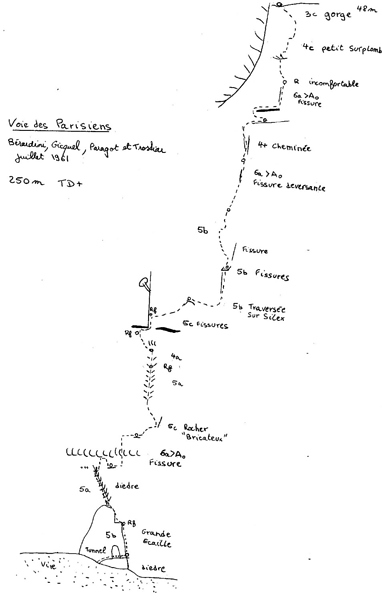 48m
3c gorge
4c petit surplomb
R inconfortable
6a > A0
fissure
Voie des Parisiens
Bérardini, Gicquel, Paragot et Troskiar
juillet 1961
250m TD+
4+ Cheminée
6a > A0
Fissure deversante
5b
Fissure
5b Fissures
5b Traversée
sur Silex
Rg
Rg
5c Fissures
4a
Rg
5a
5c Rocher
"Bricaleux"
6a > A0
Fissure
5a diedre
Rg
5b
Grande
Ecaille
Tunnel
Vire
diedre